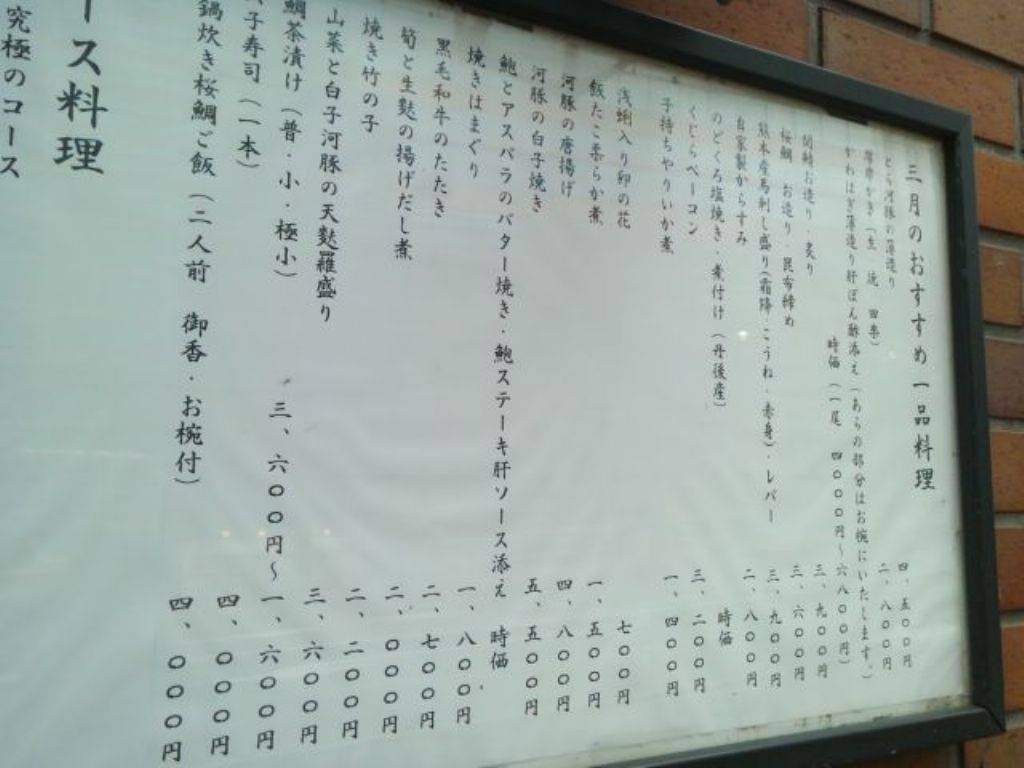 三月のおすすめ一品料理
とら河豚の薄造り 四、五〇〇円
摩周かき（生 焼 四季） 二、八〇〇円
かわはぎ薄造り肝ぽん酢添え（あらの部分はお椀にいたします。）
時価（一尾 四〇〇〇円～六八〇〇円）
関鯖お造り・炙り 三、九〇〇円
桜鯛 お造り・昆布締め 三、六〇〇円
熊本産馬刺し盛り（霜降・こうね・赤身）・レバー 三、九〇〇円
自家製からすみ 二、八〇〇円
のどぐろ塩焼き・煮付け（丹後産） 時価
くじらベーコン 三、二〇〇円
子持ちやりいか煮 一、四〇〇円
浅蜊入り卯の花 七〇〇円
飯たこ柔らか煮 一、五〇〇円
河豚の唐揚げ 四、八〇〇円
河豚の白子焼き 五、五〇〇円
鮑とアスパラのバター焼き・鮑ステーキ肝ソース添え 時価
焼きはまぐり 一、八〇〇円
黒毛和牛のたたき 二、七〇〇円
筍と生麩の揚げだし煮 二、〇〇〇円
焼き竹の子 二、二〇〇円
山菜と白子河豚の天麩羅盛り 三、六〇〇円
鯛茶漬け（普・小・極小） 三、六〇〇円～一、六〇〇円
子寿司（一本） 四、〇〇〇円
鍋炊き桜鯛ご飯（二人前 御香・お椀付） 四、〇〇〇円
ース料理
究極のコース